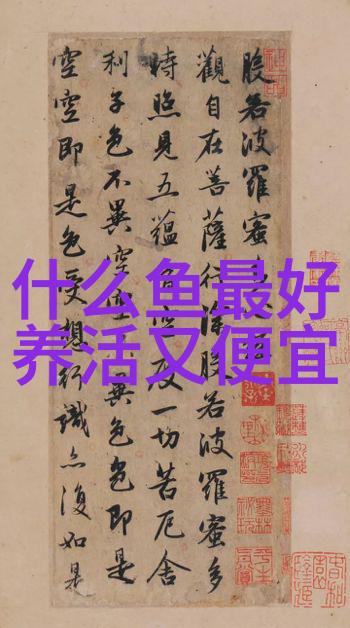 什么鱼最好
养活又便宜
般若波羅蜜
觀自在菩薩行深般若波羅蜜多
時照見五蘊皆空度一切苦厄舍
利子色不異空空不異色色即是
空空即是色受想行識亦復如是